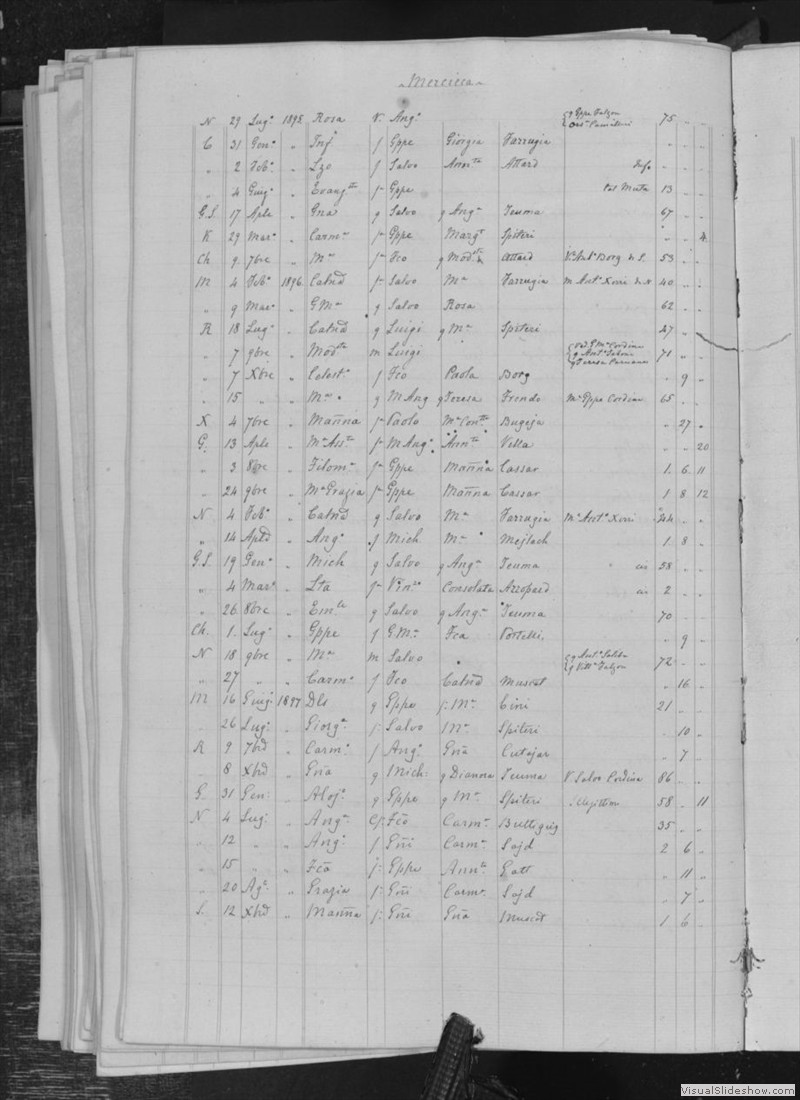 Mercieca
N 29 Lug. 1895 Rosa v. Ang. g Gppe Falzon 75 " "
C 31 Gen. " Inf. f Gppe Giorgia Farrugia " "
" 2 Feb. " Lzo f Salvo Ann.ta Attard Info " "
" 4 Guig. " Evang.ta f Gppe 13 " "
G.S. 17 Aple " Gna g Salvo g Ang. Teuma 67 " "
K 29 Mar. " Carm. f Gppe Marg. Spiteri " " 4
Ch 9 7bre " M. f Fco g Mod.ta Attard V. Ant. Borg 53 " "
M 4 Feb. 1896 Catnd f Salvo M. Farrugia m Ant. Xerri de N 40 " "
" 9 Mar. " G.M. g Salvo Rosa 62 " "
R 18 Lug. " Catnd g Luigi g M. Spiteri 27 " "
" 7 9bre " Mod.ta m Luigi g Ant. Saliba 71 " "
" 7 Xbre " Celest. f Fco Paola Borg " 9 "
" 15 " " M. g M Ang g Teresa Frendo M. Gppe Cordina 65 " "
X 4 7bre " Mañna f Paolo M. Con.tta Bugeja " 27 "
G. 13 Aple " M. Ass.ta f M Ang. Ann.ta Vella " " 20
" 3 8bre " Filom. f Gppe Mañna Cassar 1 6 11
" 24 9bre " M. Grazia f Gppe Mañna Cassar 1 8 12
N 4 Feb. " Catnd g Salvo M. Farrugia M. Ant. Xerri 44 " "
" 14 Aple " Ang. f Mich M. Mejlach 1 8 "
G.S. 19 Gen. " Mich g Salvo g Ang. Teuma " 58 " "
" 4 Mar. " Lta f Vin. Consolata Azzopard 2 " "
" 26 8bre " Em.le g Salvo g Ang. Teuma 70 " "
Ch. 1 Lug. " Gppe f G.M. Fca Portelli " 9 "
N 18 9bre " M. m Salvo g Ant. Saliba g Vitt. Falzon 72 " "
" 27 " " Carm. f Fco Catnd Muscat " 16 "
M 16 Guig. 1897 Dls g Gppe f. M. Cini 21 " "
" 26 Lug. " Giorg. f. Salvo M. Spiteri " 10 "
R 9 7bre " Carm. f Ang. Gña Cutajar " 7 "
" 8 Xbre " Gña g Mich. g Dianna Teuma V Salvo Cordina 86 " "
G. 31 Gen. " Aloj. g Gppe g M. Spiteri 58 " 11
N 4 Lug. " Ang. Cp. Fco Carm. Buttigieg 35 " "
" 12 " " Ang. f Gñi Carm. Sajd 2 6 "
" 15 " " Fca f. Gppe Ann.ta Gatt " 11 "
" 20 Ag. " Grazia f. Gñi Carm. Sajd " 7 "
S. 12 Xbre " Mañna f. Gñi Gña Muscat 1 6 "
VisualSlideshow.com